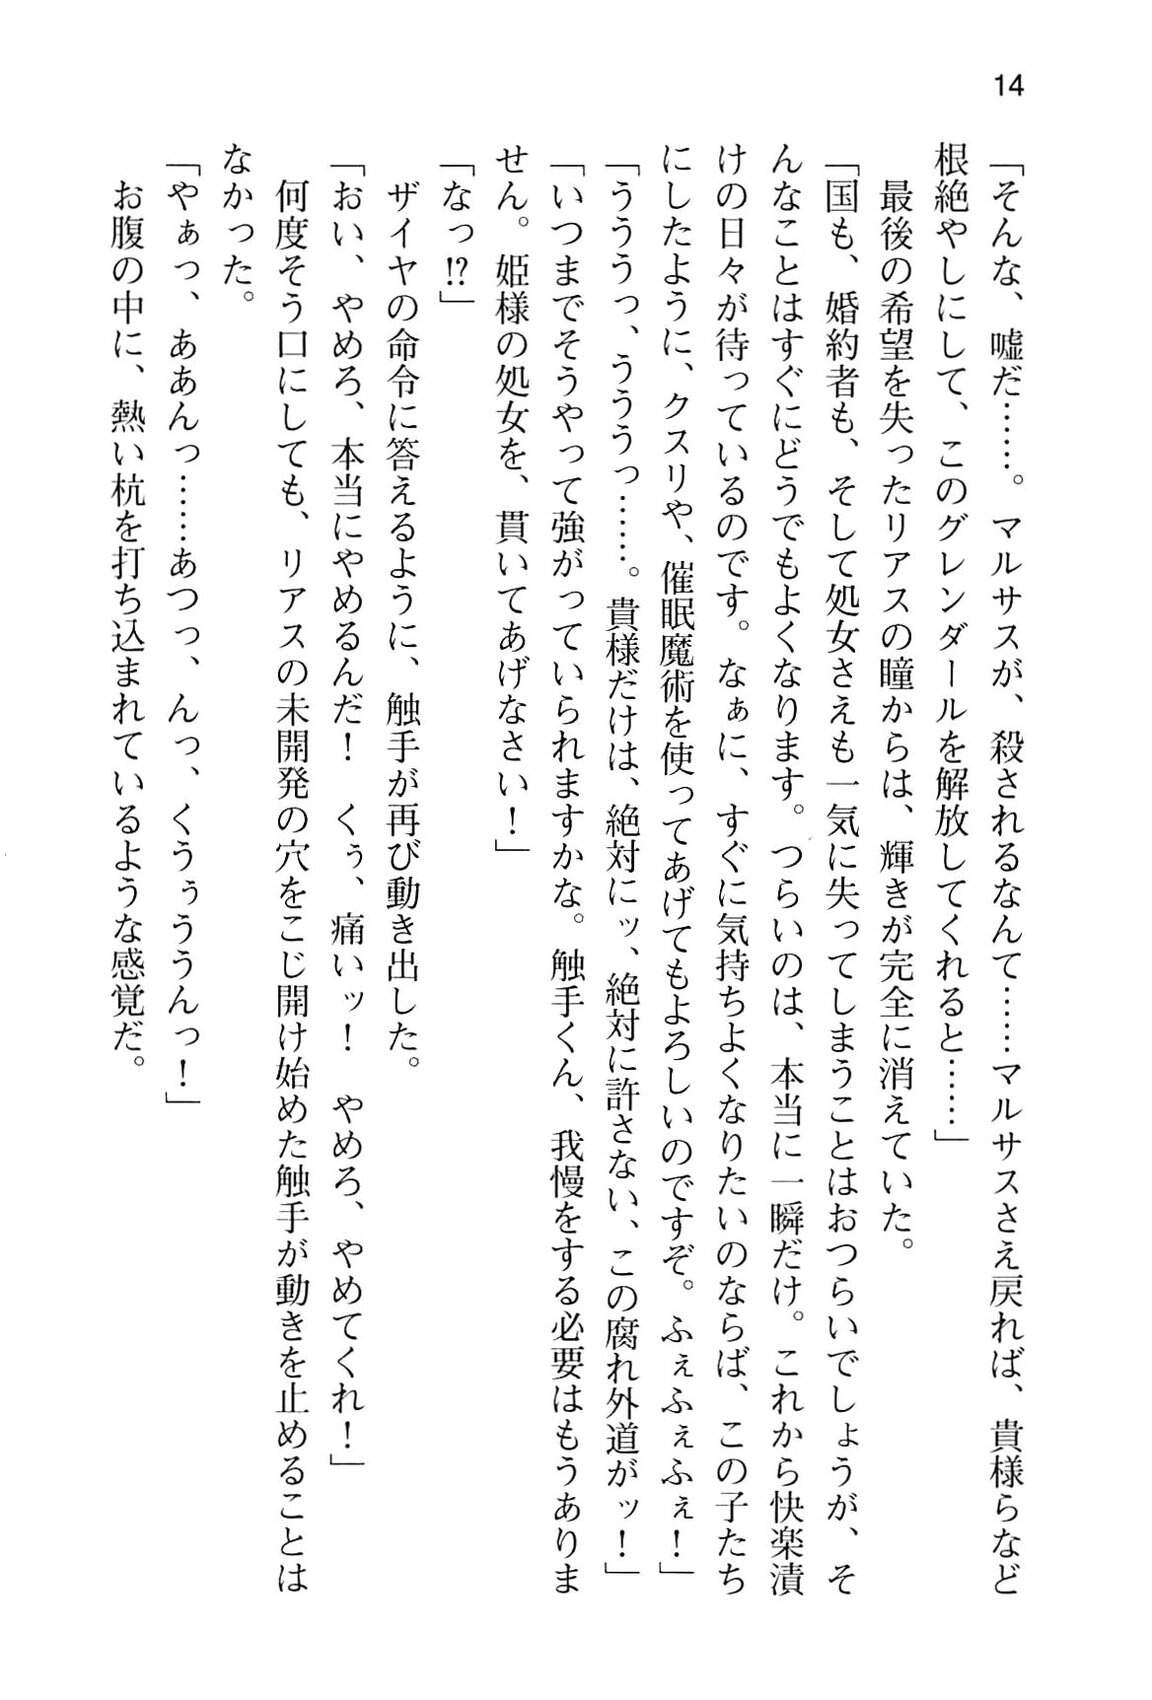 14
「そんな、嘘だ……。マルサスが、殺されるなんて……マルサスさえ戻れば、貴様らなど
根絶やしにして、このグレンダールを解放してくれると……」
最後の希望を失ったリアスの瞳からは、輝きが完全に消えていた。
「国も、婚約者も、そして処女さえも一気に失ってしまうことはおつらいでしょうが、そ
んなことはすぐにどうでもよくなります。つらいのは、本当に一瞬だけ。これから快楽漬
けの日々が待っているのです。なぁに、すぐに気持ちよくなりたいのならば、この子たち
にしたように、クスリや、催眠魔術を使ってあげてもよろしいのですぞ。ふぇふぇふぇ！」
「うううっ、うううっ……。貴様だけは、絶対にッ、絶対に許さない、この腐れ外道がッ！」
「いつまでそうやって強がっていられますかな。触手くん、我慢をする必要はもうありま
せん。姫様の処女を、貫いてあげなさい！」
「なっ!?」
ザイヤの命令に答えるように、触手が再び動き出した。
「おい、やめろ、本当にやめるんだ！　くぅ、痛いッ！　やめろ、やめてくれ！」
何度そう口にしても、リアスの未開発の穴をこじ開け始めた触手が動きを止めることは
なかった。
「やぁっ、ああんっ……あつっ、んっ、くうぅううんっ！」
お腹の中に、熱い杭を打ち込まれているような感覚だ。